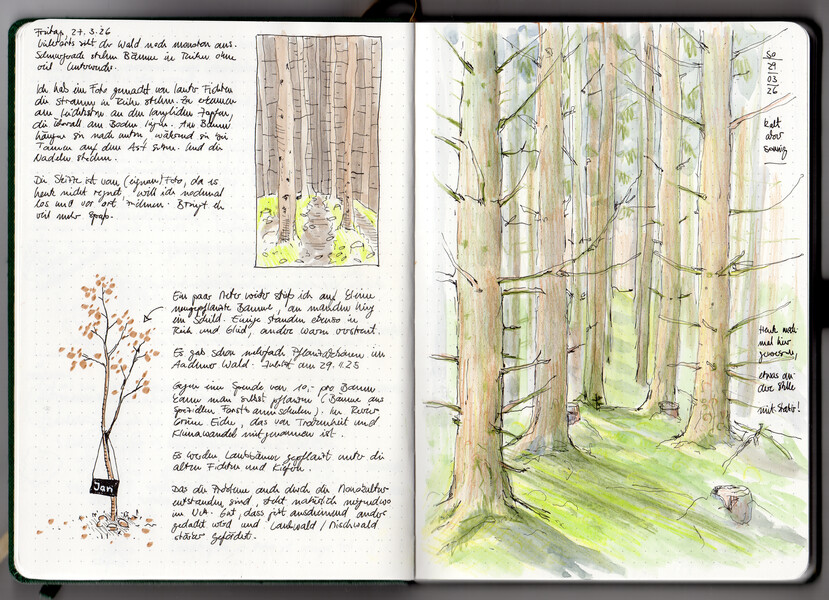 Freitag, 27.3.26
sieht der Wald nach monoton aus.
stehen Bäume in Reihen ohne
viel
Ich hab ein Foto gemacht von lauter Fichten
die stramm in Reihe stehen. Zu erkennen
am leichtesten an den länglichen Zapfen,
die überall am Boden liegen. Am Baum
hängen sie nach unten, während sie bei
Tannen auf dem Ast sitzen. Und die
Nadeln stechen.
Die Skizze ist vom (eigenen) Foto, da es
heute nicht regnet, will ich nochmal
los und vor Ort zeichnen. Bringt eh
viel mehr Spaß.
Ein paar Meter weiter stoß ich auf kleine
neugepflanzte Bäume, an manchen hing
ein Schild. Einige standen ebenso in
Reih und Glied, andere waren verstreut.
Es gab schon mehrfach im
Wald. Zuletzt am 29.11.25
Gegen eine Spende von 10,- pro Baum
kann man selbst pflanzen (Bäume aus
speziellen Forstbaumschulen). Im Revier
Grüne Eiche, das von Trockenheit und
Klimawandel mitgenommen ist.
Es werden Laubbäume gepflanzt unter die
alten Fichten und Kiefern.
Das die Probleme auch durch die Monokultur
entstanden sind, steht natürlich nirgendwo
im Gut, dass jetzt anscheinend anders
gedacht wird und Laubwald / Mischwald
stärker gefördert.
Jan
So
29
03
26
kalt
aber
sonnig
Heute noch
mal hier
gewesen,
etwas an
dere Stelle
mit Stativ!